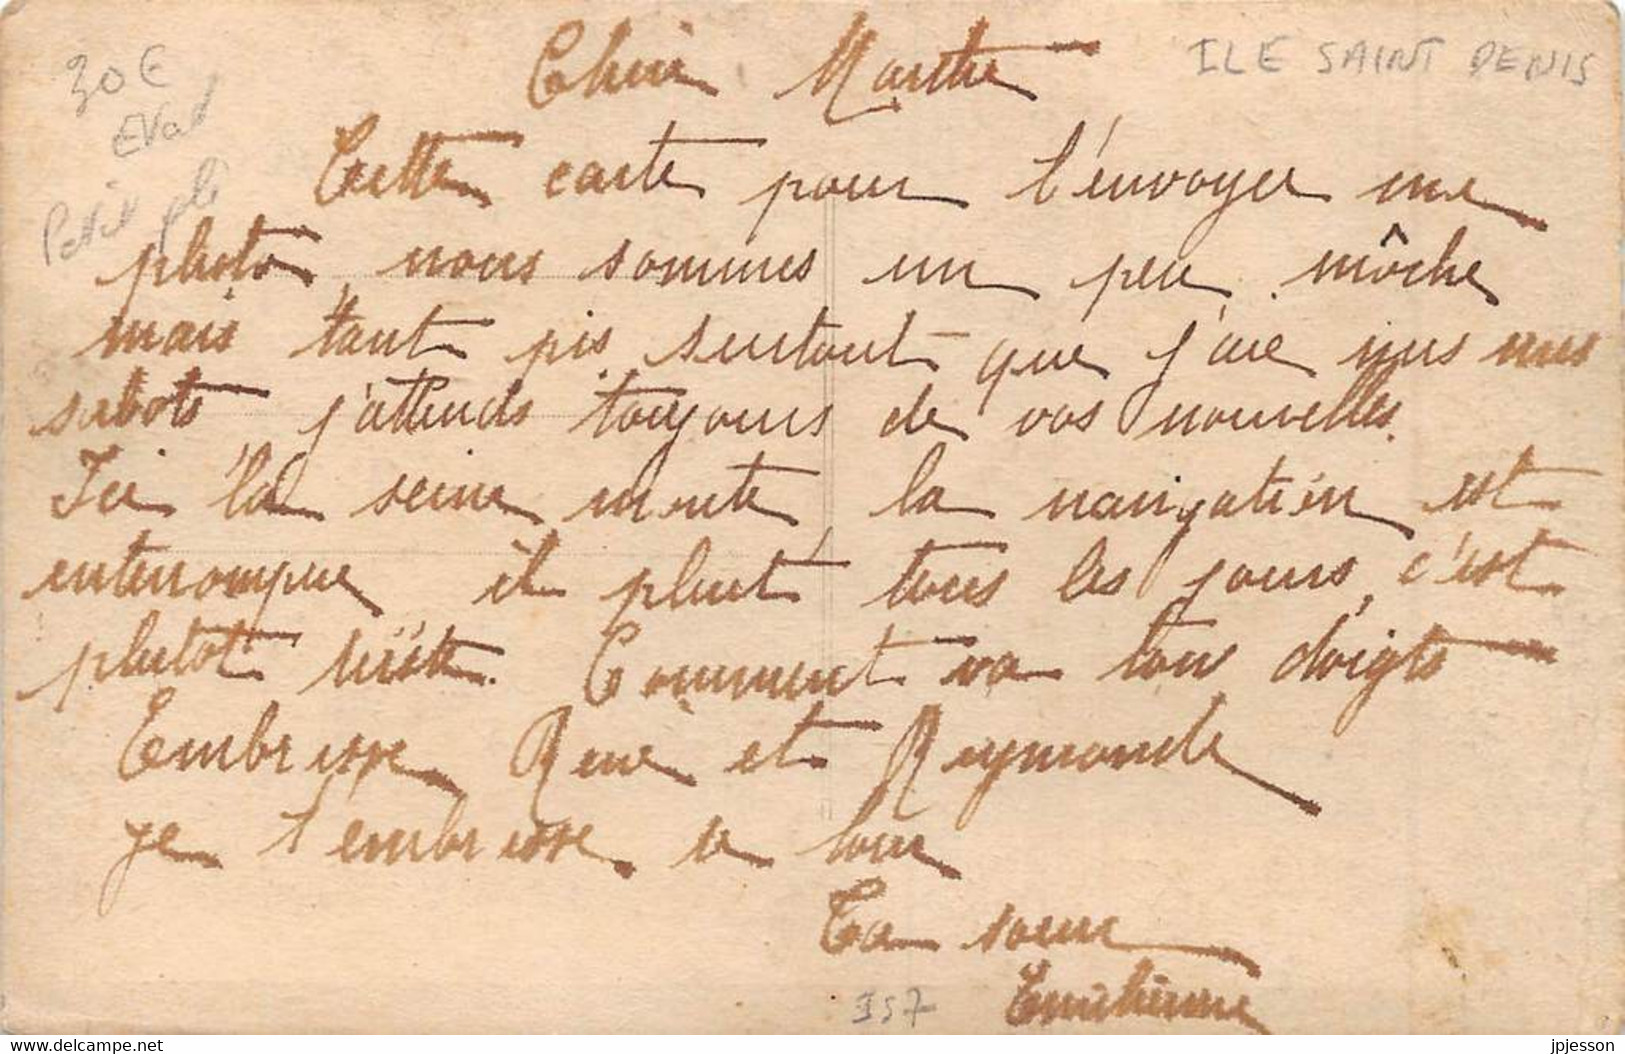 30€
EVal
Petit pli
ILE SAINT DENIS
Chère Marthe
Cette carte pour t'envoyer une
photo, nous sommes un peu môche
mais tant pis, surtout que j'aie mis mes
sabots j'attends toujours de vos nouvelles.
Ici la seine monte, la navigation est
interrompue il pleut tous les jours, c'est
plutot triste. Comment va ton doigts
Embrasse René et Raymonde
je t'embrasse
Ta soeur
Emilienne
357
Delcampe.net
jpjesson